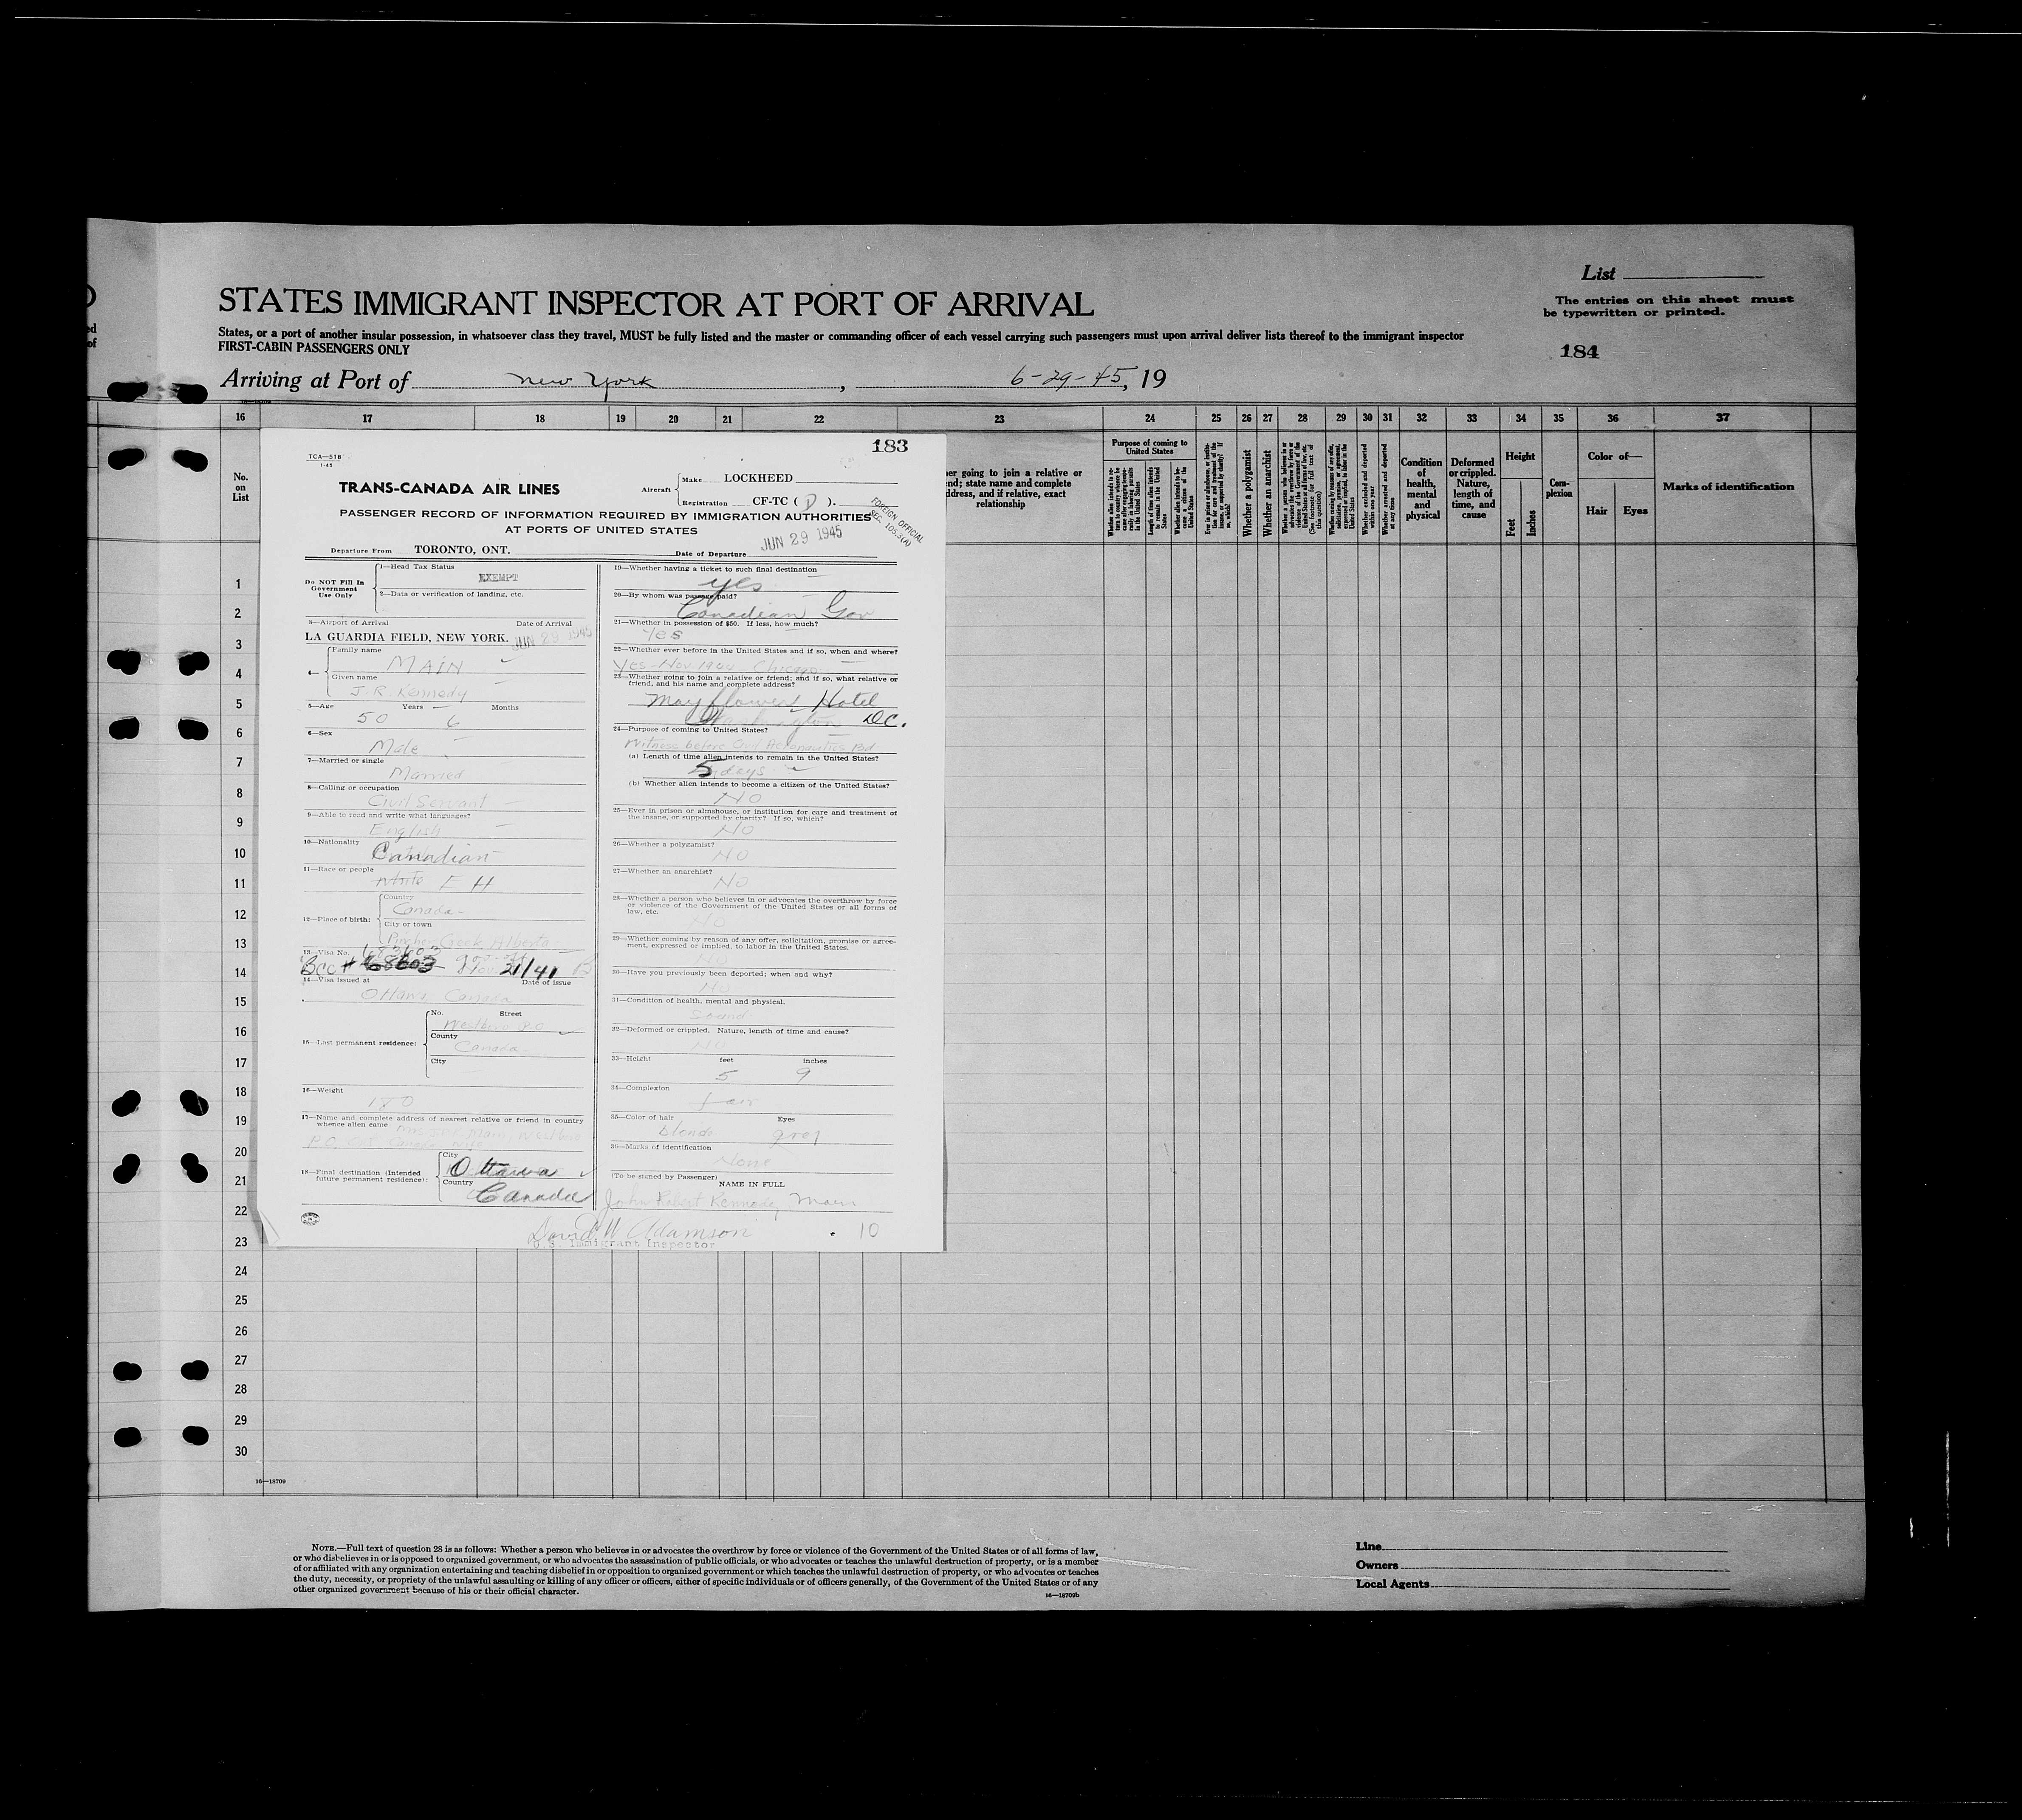 List
STATES IMMIGRANT INSPECTOR AT PORT OF ARRIVAL
The entries on this sheet must
be typewritten or printed.
States, or a port of another insular possession, in whatsoever class they travel, MUST be fully listed and the master or commanding officer of each vessel carrying such passengers must upon arrival deliver lists thereof to the immigrant inspector
FIRST-CABIN PASSENGERS ONLY
184
Arriving at Port of New York, 6-29-45, 19
16 17 18 19 20 21 22 23 24 25 26 27 28 29 30 31 32 33 34 35 36 37
No. on List
Purpose of coming to United States
Whether a polygamist
Whether an anarchist
Condition of health, mental and physical
Deformed or crippled. Nature, length of time, and cause
Height
Feet
Inches
Com-plexion
Color of—
Hair
Eyes
Marks of identification
er going to join a relative or
nd; state name and complete
ddress, and if relative, exact
relationship
183
TCA—518
1-45
TRANS-CANADA AIR LINES
Aircraft
Make LOCKHEED
Registration CF-TC ( D ).
PASSENGER RECORD OF INFORMATION REQUIRED BY IMMIGRATION AUTHORITIES
AT PORTS OF UNITED STATES
FOREIGN OFFICIAL
SEC. 105.3(A)
Departure From TORONTO, ONT.
Date of Departure JUN 29 1945
Do NOT Fill In
Government
Use Only
1—Head Tax Status
EXEMPT
2—Data or verification of landing, etc.
3—Airport of Arrival Date of Arrival
LA GUARDIA FIELD, NEW YORK. JUN 29 1945
4— Family name
MAIN
Given name
J.R. Kennedy
5—Age Years Months
50 6
6—Sex
Male
7—Married or single
Married
8—Calling or occupation
Civil Servant
9—Able to read and write what languages?
English
10—Nationality
Canadian
11—Race or people
White E H
12—Place of birth:
Country
Canada
City or town
Pincher Creek Alberta
13—Visa No.
Bcc # 68603 21/41
14—Visa issued at Date of issue
Ottawa Canada
15—Last permanent residence:
No. Street
Westboro P.O
County
Canada
City
16—Weight
180
17—Name and complete address of nearest relative or friend in country
whence alien came
18—Final destination (Intended
future permanent residence):
City
Ottawa
Country
Canada
19—Whether having a ticket to such final destination
yes
20—By whom was passage paid?
Canadian Gov
21—Whether in possession of $50. If less, how much?
Yes
22—Whether ever before in the United States and if so, when and where?
Yes - Nov. 1944 - Chicago
23—Whether going to join a relative or friend; and if so, what relative or
friend, and his name and complete address?
Mayflower Hotel
Washington DC.
24—Purpose of coming to United States?
Witness before Civil Aeronautics Bd
(a) Length of time alien intends to remain in the United States?
5 days
(b) Whether alien intends to become a citizen of the United States?
No
25—Ever in prison or almshouse, or institution for care and treatment of
the insane, or supported by charity? If so, which?
No
26—Whether a polygamist?
No
27—Whether an anarchist?
No
28—Whether a person who believes in or advocates the overthrow by force
or violence of the Government of the United States or all forms of
law, etc.
No
29—Whether coming by reason of any offer, solicitation, promise or agree-
ment, expressed or implied, to labor in the United States.
No
30—Have you previously been deported; when and why?
No
31—Condition of health, mental and physical.
Sound
32—Deformed or crippled. Nature, length of time and cause?
No
33—Height feet inches
5 9
34—Complexion
fair
35—Color of hair Eyes
blonde grey
36—Marks of identification
None
(To be signed by Passenger)
NAME IN FULL
John Robert Kennedy Main
David W Adamson 10
U.S. Immigrant Inspector
1
2
3
4
5
6
7
8
9
10
11
12
13
14
15
16
17
18
19
20
21
22
23
24
25
26
27
28
29
30
16—18709
NOTE.—Full text of question 28 is as follows: Whether a person who believes in or advocates the overthrow by force or violence of the Government of the United States or of all forms of law,
or who disbelieves in or is opposed to organized government, or who advocates the assassination of public officials, or who advocates or teaches the unlawful destruction of property, or is a member
of or affiliated with any organization entertaining and teaching disbelief in or opposition to organized government or which teaches the unlawful destruction of property, or who advocates or teaches
the duty, necessity, or propriety of the unlawful assaulting or killing of any officer or officers, either of specific individuals or of officers generally, of the Government of the United States or of any
other organized government because of his or their official character.
16—18709b
Line
Owners
Local Agents